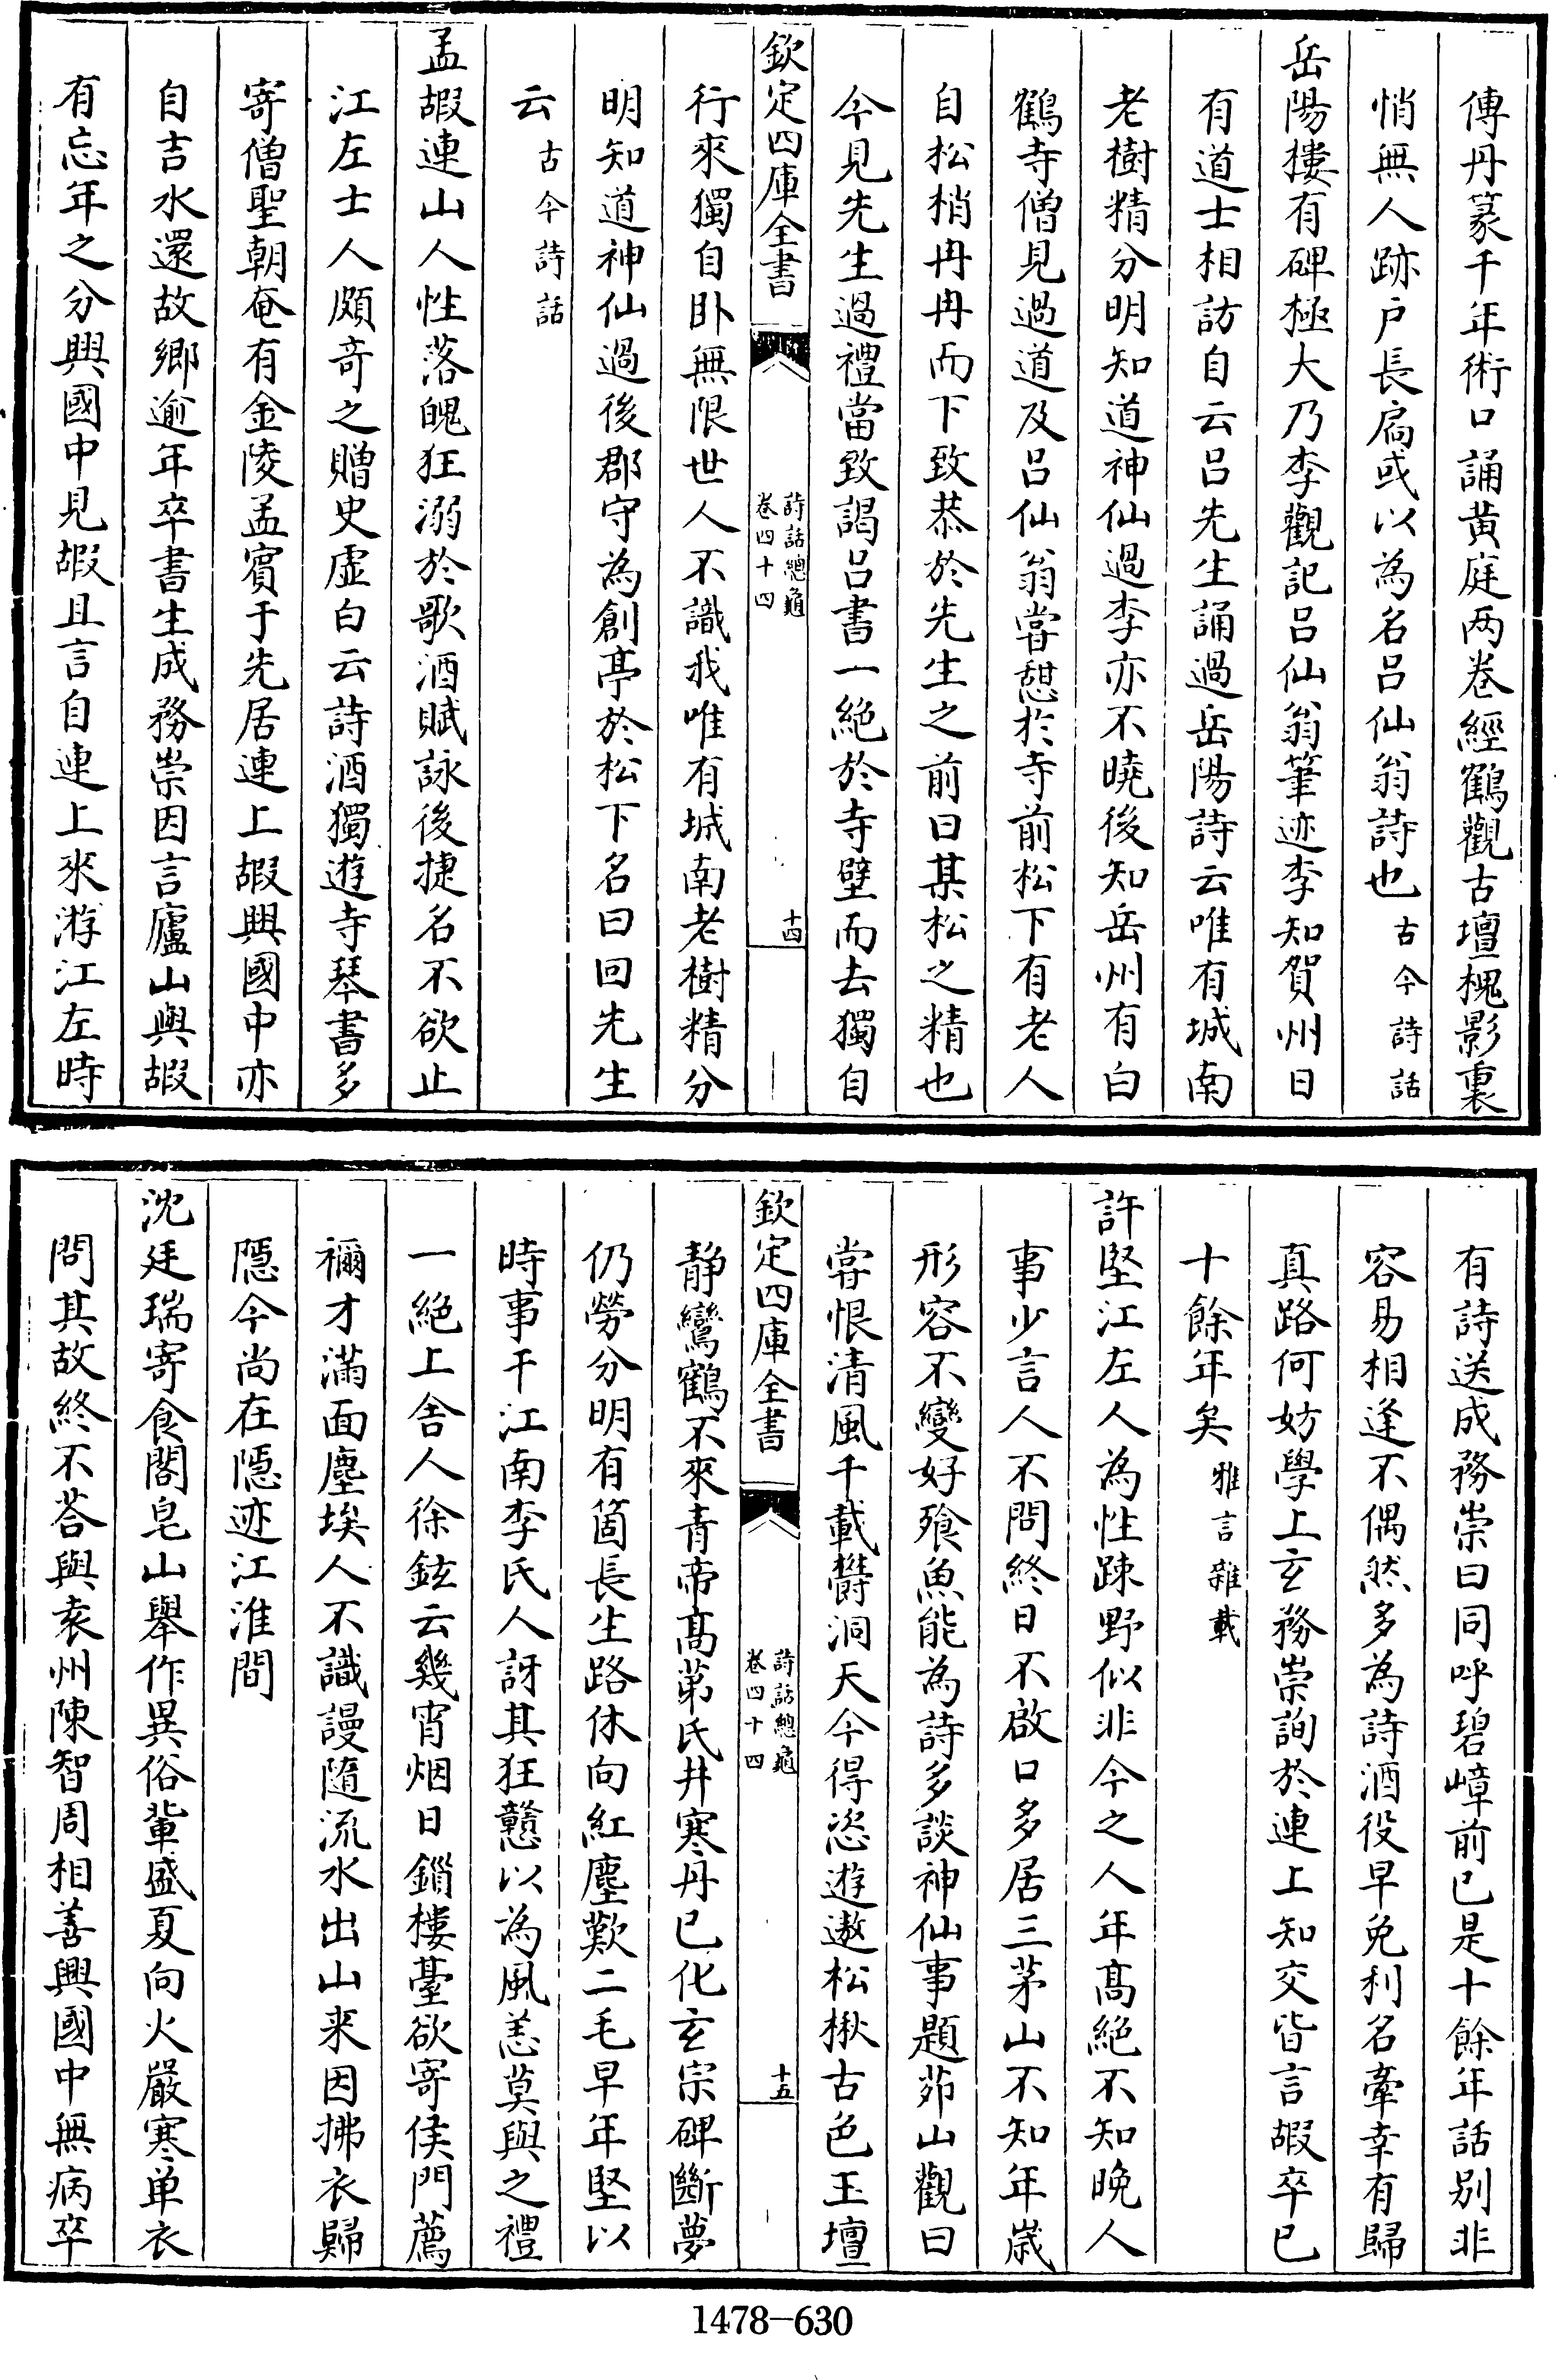 傳丹篆千年術口誦黄庭两卷經鶴觀古壇槐影裏
悄無人跡户長扄或以為名吕仙翁詩也古今詩話
岳陽樓有碑極大乃李觀記吕仙翁筆迹李知賀州日
有道士相訪自云吕先生誦過岳陽詩云唯有城南
老樹精分明知道神仙過李亦不曉後知岳州有白
鶴寺僧見過道及吕仙翁嘗憇於寺前松下有老人
自松梢冉冉而下致恭於先生之前曰某松之精也
今見先生過禮當致謁吕書一絶於寺壁而去獨自
欽定四庫全書
詩話總龜
卷四十四
十四
行來獨自卧無限世人不識我唯有城南老樹精分
明知道神仙過後郡守為創亭於松下名曰回先生
云古今詩話
孟嘏連山人性落魄狂溺於歌酒賦詠後捷名不欲止
江左士人頗奇之贈史虚白云詩酒獨遊寺琴書多
寄僧聖朝奄有金陵孟賓于先居連上嘏興國中亦
自吉水還故鄉逾年卒書生成務崇因言廬山與嘏
有忘年之分興國中見嘏且言自連上來游江左時
有詩送成務崇曰同呼碧嶂前已是十餘年話别非
容易相逢不偶然多為詩酒役早免利名牽幸有歸
真路何妨學上玄務崇詢於連上知交皆言嘏卒已
十餘年矣雅言雜載
許堅江左人為性踈野似非今之人年髙絶不知晚人
事少言人不問終日不啟口多居三茅山不知年嵗
形容不變好飱魚能為詩多談神仙事題茆山觀曰
嘗恨清風千載欝洞天今得恣遊遨松楸古色玉壇
欽定四庫全書
詩話總龜
卷四十四
十五
静鸞鶴不來青帝髙茀氏井寒丹已化玄宗碑斷夢
仍勞分明有箇長生路休向紅塵歎二毛早年堅以
時事干江南李氏人訝其狂戇以為風恙莫與之禮
一絶上舍人徐鉉云幾宵烟日鎻樓臺欲寄侯門薦
禰才滿面塵埃人不識謾隨流水出山来因拂衣歸
隠今尚在隠迹江淮間
沈廷瑞寄食閤皂山舉作異俗輩盛夏向火嚴寒单衣
問其故終不荅與袁州陳智周相善興國中無病卒
1478-630